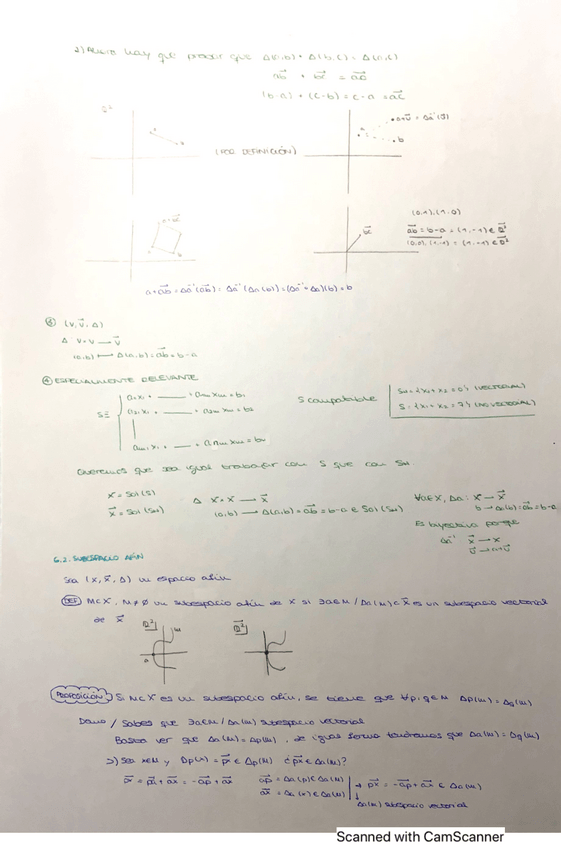 2) Ahora hay que probar que Δ(a,b) + Δ(b,c) = Δ(a,c)
ab⃗ + bc⃗ = ac⃗
(b-a) + (c-b) = c-a = ac⃗
(POR DEFINICIÓN)
a+v⃗ = Δa⁻¹(v⃗)
a
b
bc⃗
(0,1), (1,0)
ab⃗ = b-a = (1,-1) ∈ ℝ²
a+ab⃗ = Δa⁻¹(ab⃗) = Δa⁻¹(Δa(b)) = (Δa⁻¹∘Δa)(b) = b
③ (V, V⃗, Δ)
Δ V×V → V⃗
(a,b) ⟼ Δ(a,b) = ab⃗ = b-a
④ ESPECIALMENTE RELEVANTE
S compatible
(VECTORIAL)
(NO VECTORIAL)
Queremos que sea igual trabajar con S que con SH.
X = Sol(S)
X⃗ = Sol(SH)
Δ X×X → X⃗
(a,b) → Δ(a,b) = ab⃗ = b-a ∈ Sol(SH)
∀a∈X, Δa: X → X⃗
b → Δa(b) = ab⃗ = b-a
Es biyectiva porque
Δa⁻¹ X⃗ → X
v⃗ → a+v⃗
6.2. SUBESPACIO AFÍN
Sea (X, X⃗, Δ) un espacio afín
DEF M⊂X, M≠∅ un subespacio afín de X si ∃a∈M / Δa(M)⊂X⃗ es un subespacio vectorial
de X⃗
ℝ²
M
a
ℝ⃗²
PROPOSICIÓN Si M⊂X es un subespacio afín, se tiene que ∀p,q∈M Δp(M) = Δq(M)
Demo / Sabes que ∃a∈M / Δa(M) subespacio vectorial
Basta ver que Δa(M) = Δp(M), de igual forma tendremos que Δa(M) = Δq(M)
⊃) Sea x∈M y Δp(x) = px⃗ ∈ Δp(M) ¿px⃗ ∈ Δa(M)?
px⃗ = pa⃗ + ax⃗ = -ap⃗ + ax⃗
ap⃗ = Δa(p) ∈ Δa(M)
ax⃗ = Δa(x) ∈ Δa(M)
→ px⃗ = -ap⃗ + ax⃗ ∈ Δa(M)
Δa(M) subespacio vectorial
Scanned with CamScanner